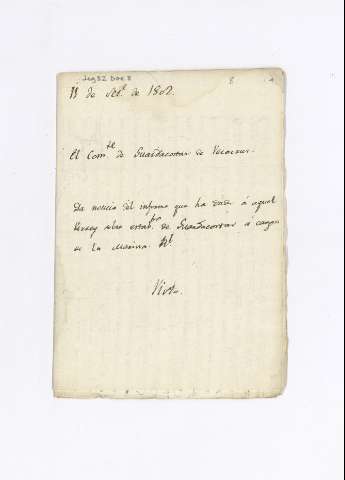 Leg 52 Doc 8
8
11 de Set.e de 1802.
El Com.te de Guardacostas de Veracruz.
Da noticia del informe que ha dado á aquel
Virrey sobre estab.to de Guardacostas á cargo
de la Marina.
Visto